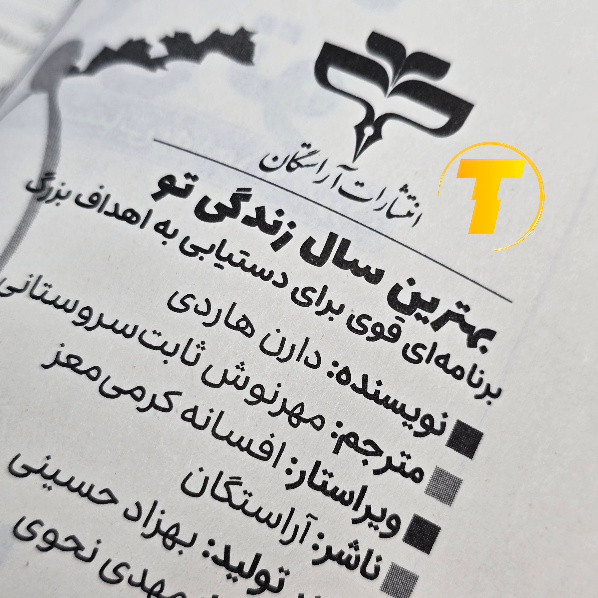 انتشارات آراستگان
T
بهترین سال زندگی تو
برنامه‌ای قوی برای دستیابی به اهداف بزرگ
نویسنده: دارن هاردی
مترجم: مهرنوش ثابت‌سروستانی
ویراستار: افسانه کرمی‌معز
ناشر: آراستگان
تولید: بهزاد حسینی
مهدی نحوی